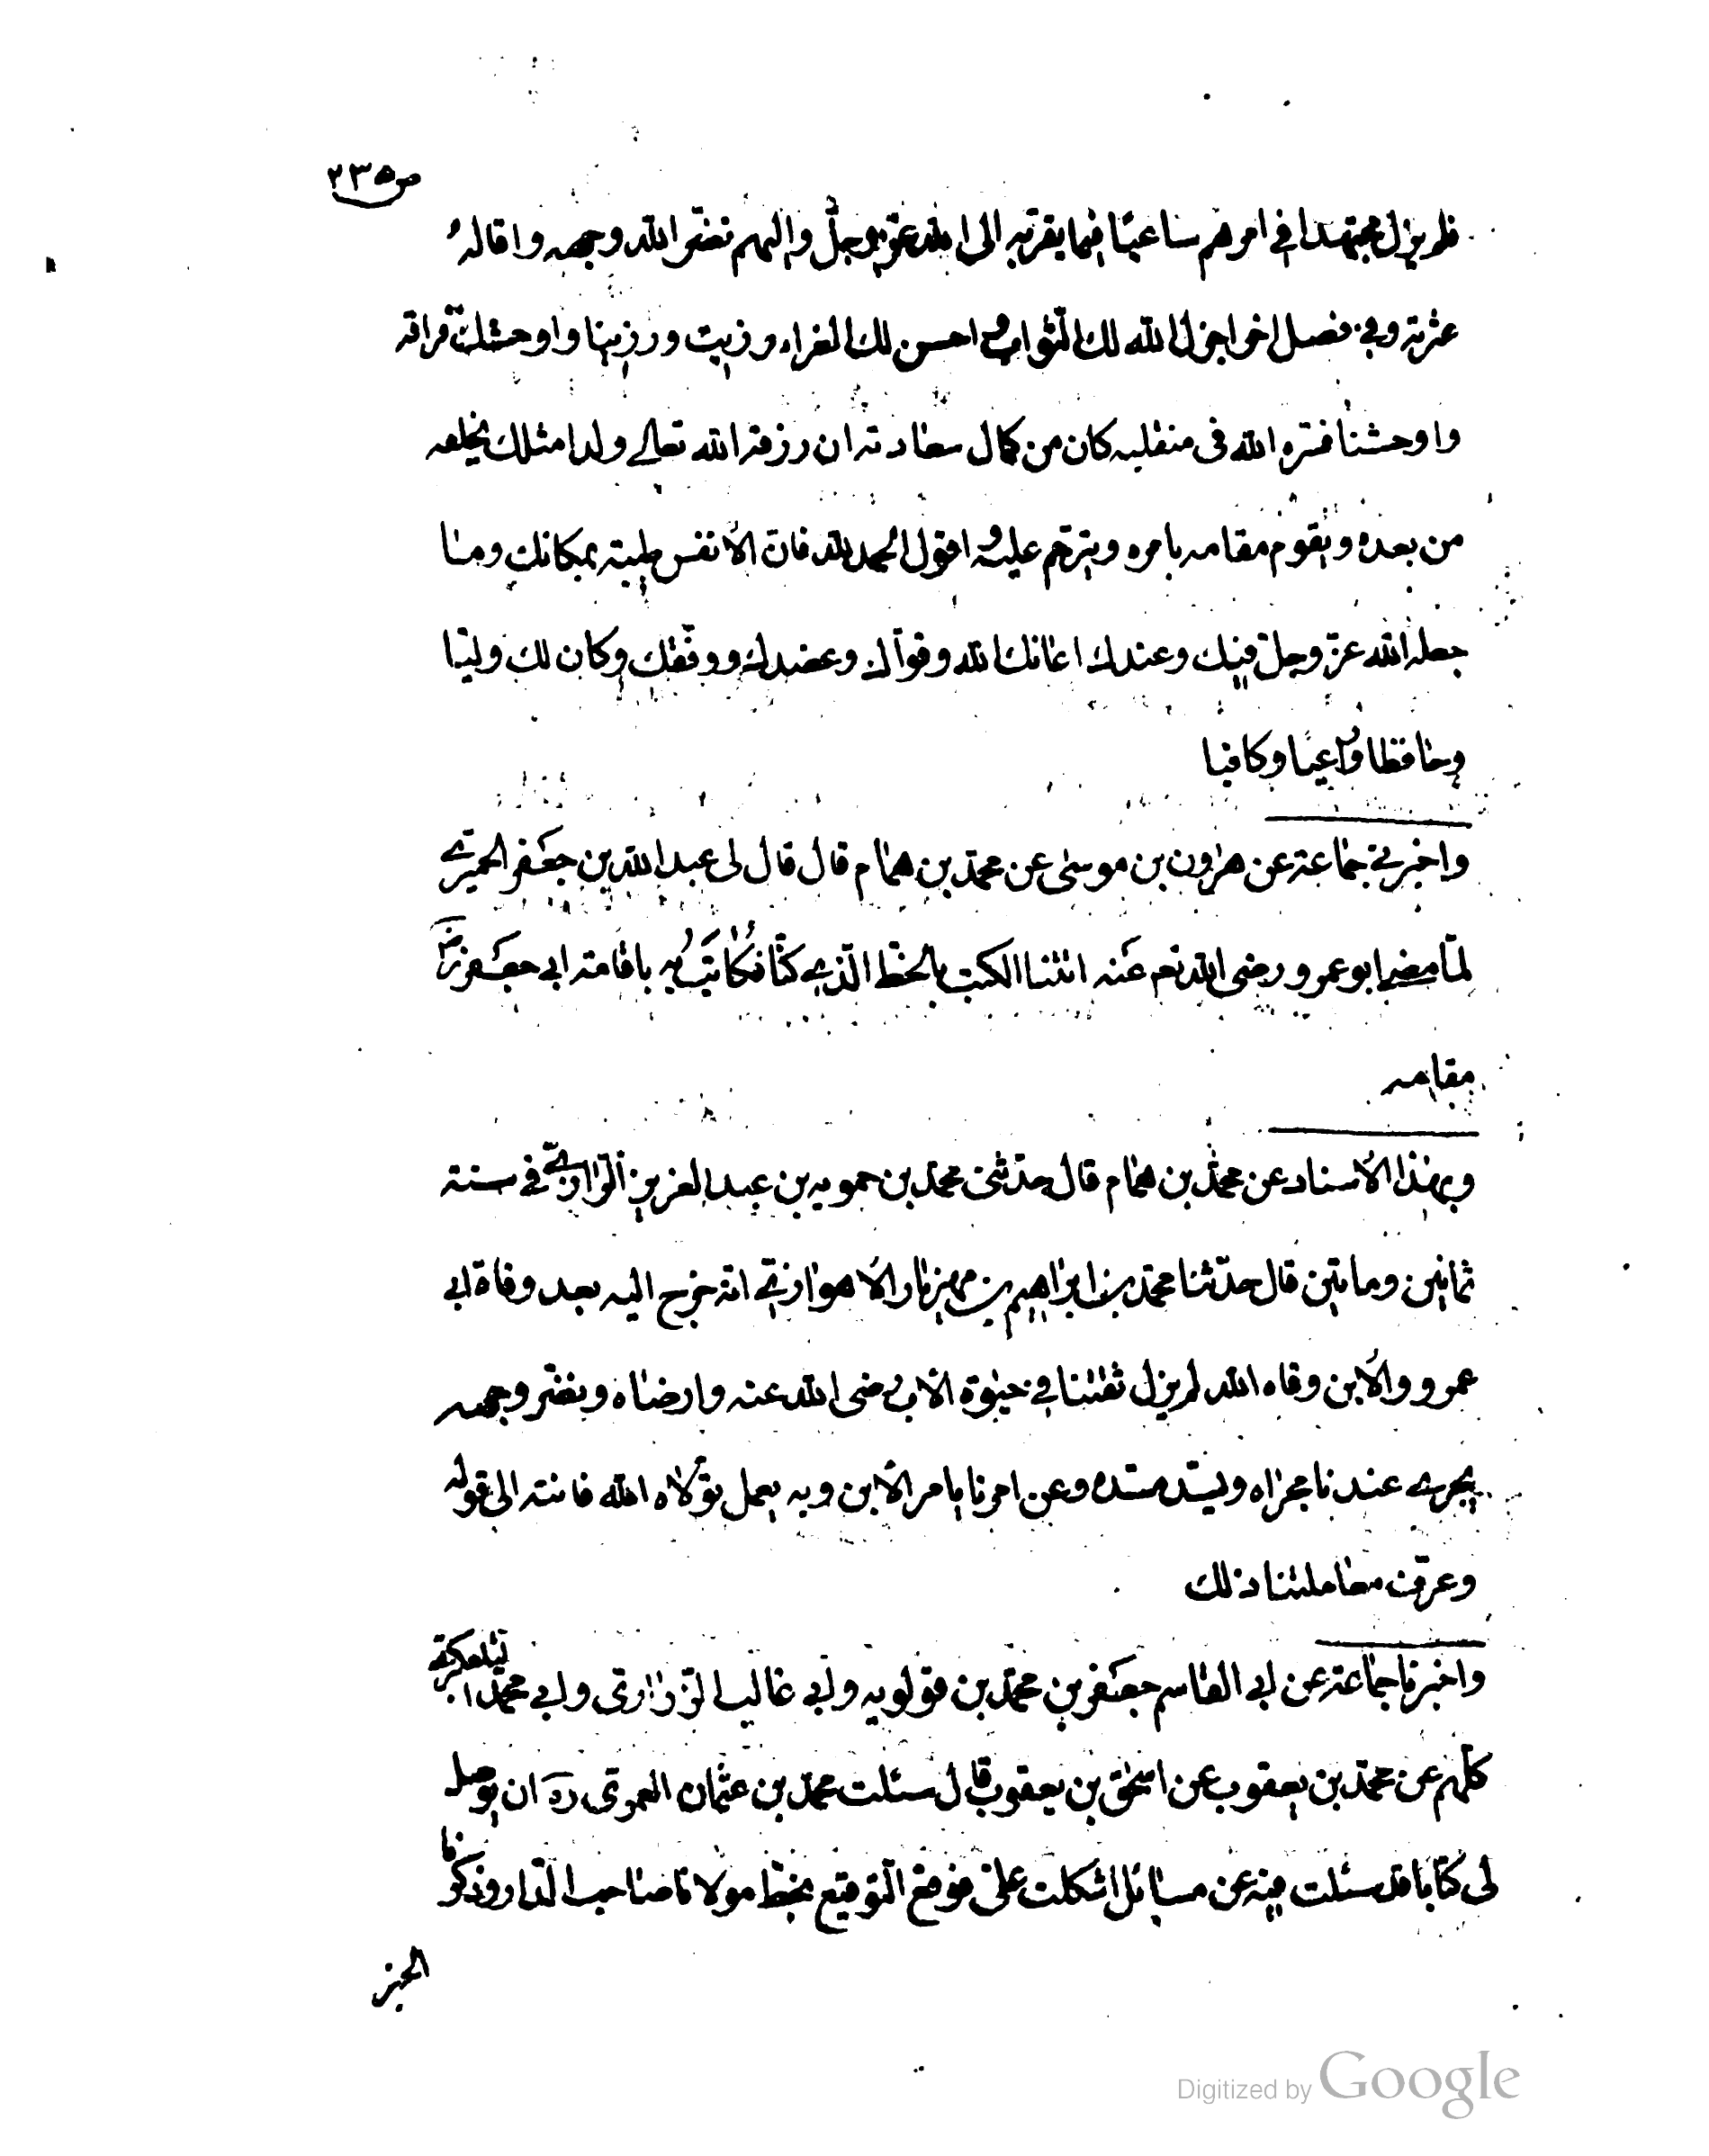 ص٢٣٥
فلم يزل مجتهدا في امرهم ساعيًا فيما يقربه الى الله عزّ وجلّ واليهم نضّر الله وجهه واقاله
عثرته وفي فصل اخر اجزل الله لك الثّواب و احسن لك العزاء ورزيت ورزينا واوحشك فراقه
واوحشنا فسّره الله في منقلبه كان من كمال سعادته ان رزقه الله تعالى ولدا مثلك يخلفه
من بعده ويقوم مقامه بامره ويترحّم عليه و اقول الحمد لله فانّ الانفس طيبته بمكانك وما
جعله الله عزّ وجلّ فيك وعندك اعانك الله وقوّاك وعضدك ووفّقك وكان لك وليّا
وحافظا وراعيا وكافيا
واخبرني جماعة عن هرون بن موسى عن محمّد بن همام قال قال لي عبد الله بن جعفر الحميري
لمّا مضى ابو عمرو رضى الله تعم عنه اتتنا الكتب بالخطّ الّذي كنّا نكاتَب به باقامة ابي جعفر رض
مقامه
وبهذا الاسناد عن محمّد بن همام قال حدّثني محمّد بن حمويه بن عبد العزيز الرّازيّ في سنة
ثمانين ومايتين قال حدّثنا محمّد بن ابراهيم بن مهزيار الاهوازيّ انّه خرج اليه بعد وفاة ابي
عمرو والابن وقاه الله لم يزل ثقتنا في حيوة الاب رضى الله عنه وارضاه ونضّر وجهه
يجري عندنا مجراه ويسدّ مسدّه وعن امرنا يامر الابن وبه يعمل تولّاه الله فانته الى قوله
وعرّف معاملتنا ذلك
واخبرنا جماعة عن ابي القاسم جعفر بن محمّد بن قولويه وابي غالب الزّراري وابي محمّد التلعكبري
كلّهم عن محمّد بن يعقوب عن اسحق بن يعقوب قال سئلت محمّد بن عثمان العمري ره ان يوصل
لي كتابا قد سئلت فيه عن مسائل اشكلت عليّ فوقع التّوقيع بخطّ مولانا صاحب الدّار وذكرنا
الخبر
Digitized by Google